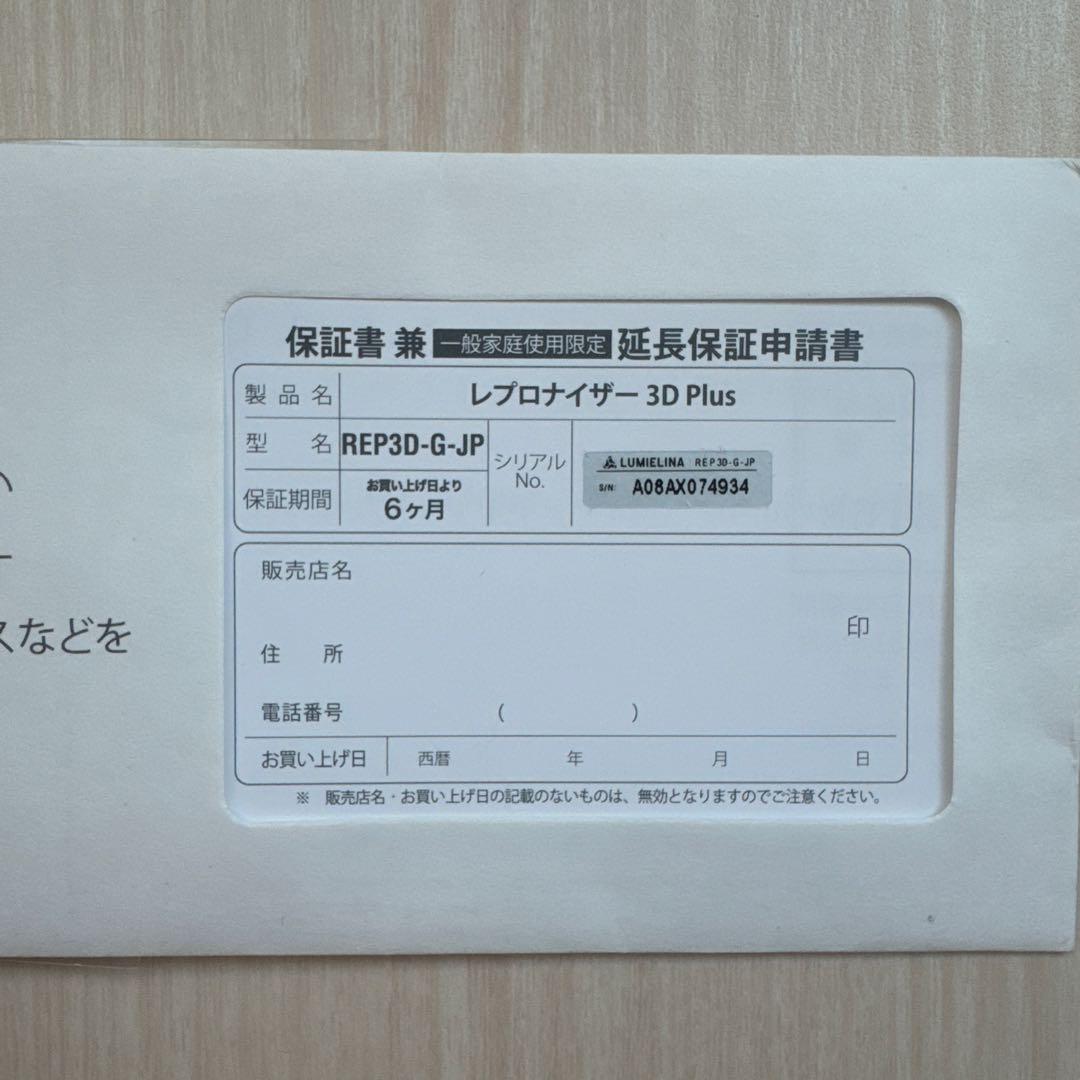 保証書 兼 一般家庭使用限定 延長保証申請書
製品名 レプロナイザー 3D Plus
型名 REP3D-G-JP
シリアルNo.
LUMIELINA REP3D-G-JP
S/N: A08AX074934
保証期間 お買い上げ日より
6ヶ月
販売店名
印
住所
電話番号 ( )
お買い上げ日 西暦 年 月 日
※ 販売店名・お買い上げ日の記載のないものは、無効となりますのでご注意ください。
の
ー
スなどを